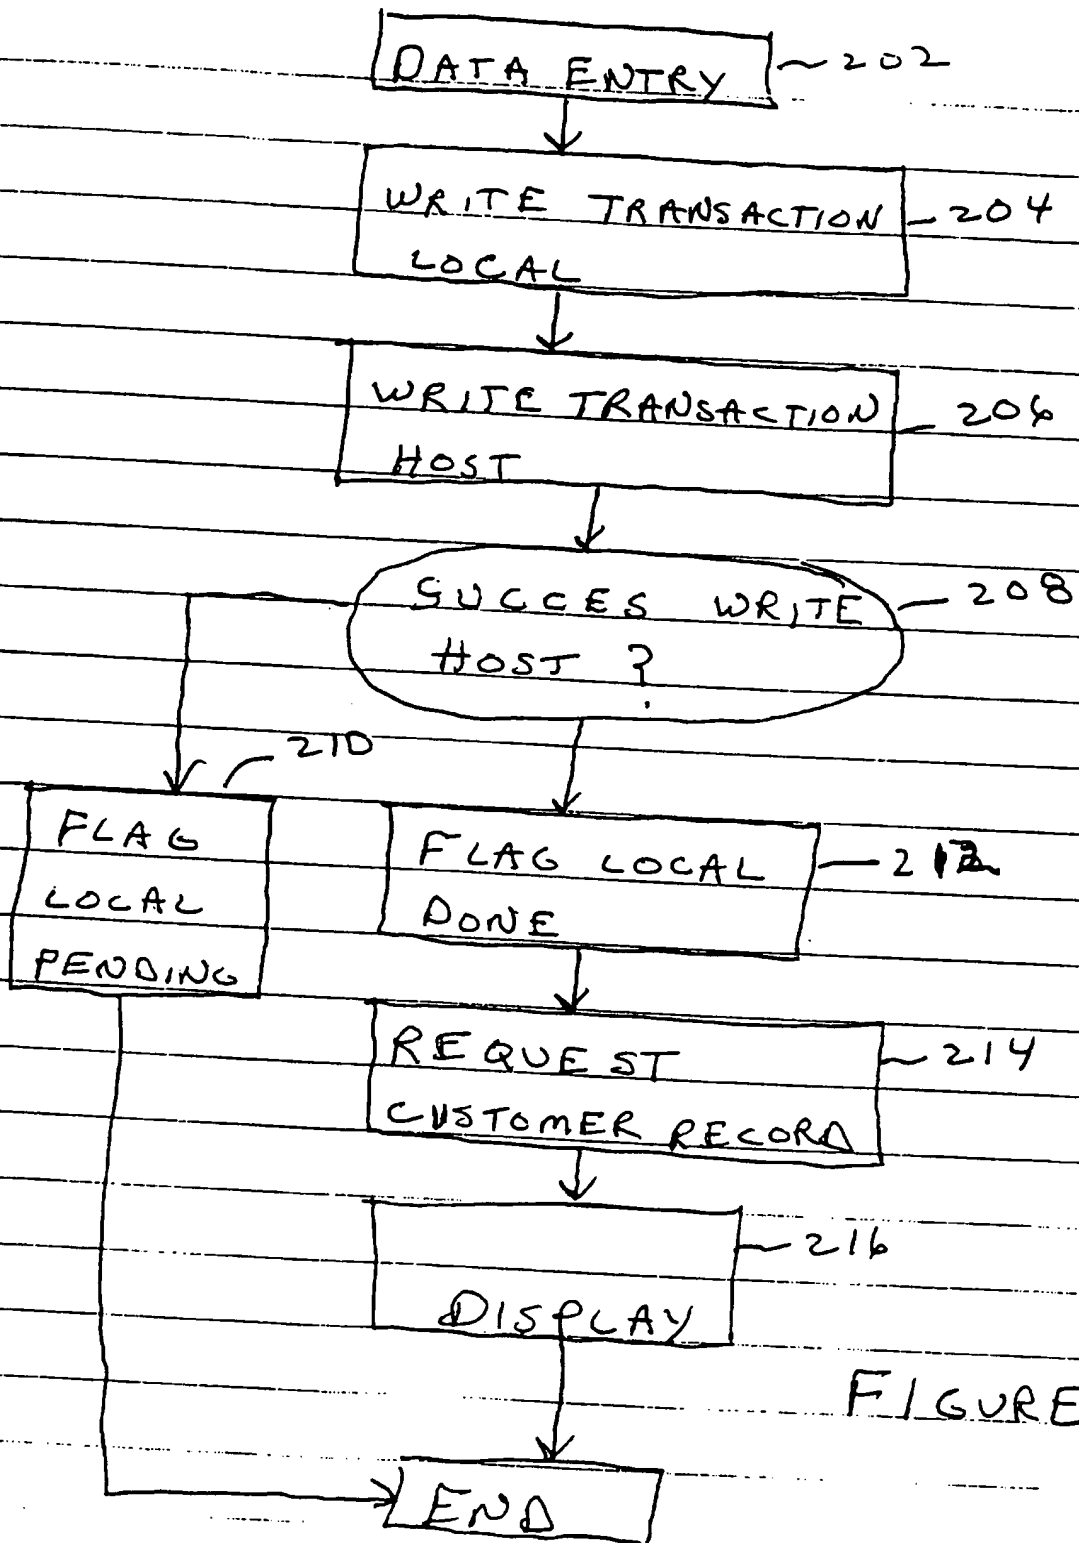 DATA ENTRY 202
WRITE TRANSACTION 204
LOCAL
WRITE TRANSACTION 206
HOST
SUCCES WRITE 208
HOST ?
210
FLAG
LOCAL
PENDING
FLAG LOCAL 212
DONE
REQUEST 214
CUSTOMER RECORD
216
DISPLAY
FIGURE
END